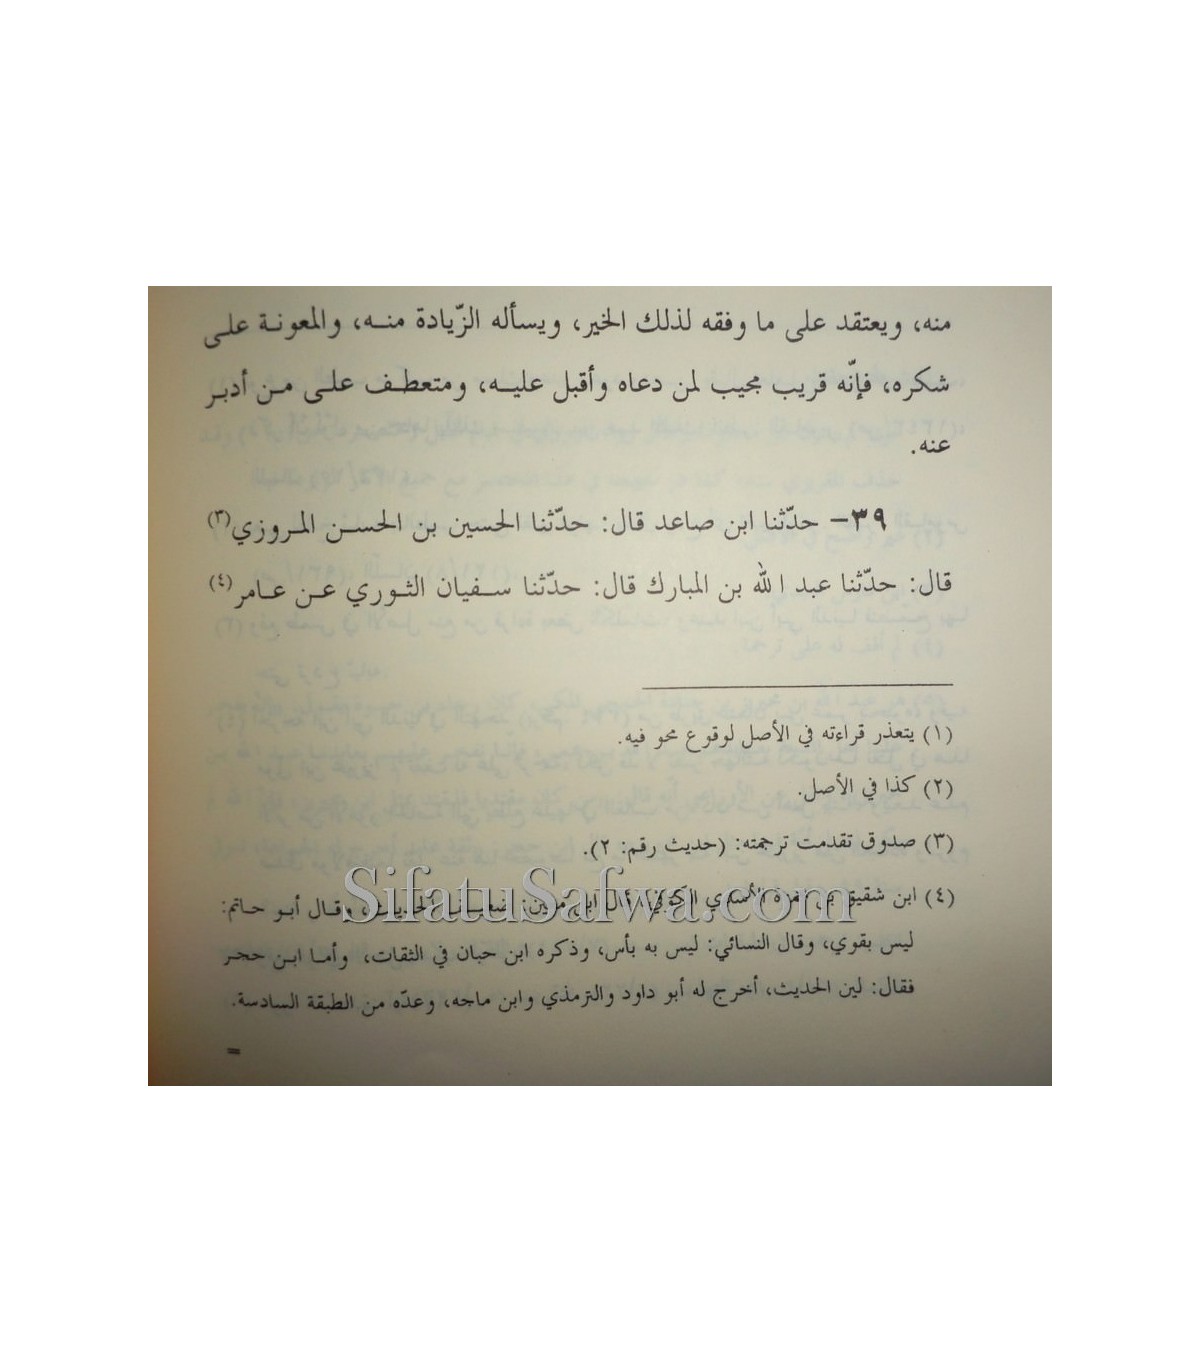 منه، ويعتقد على ما وفقه لذلك الخير، ويسأله الزّيادة منه، والمعونة على
شكره، فإنّه قريب مجيب لمن دعاه وأقبل عليه، ومتعطف على من أدبر
عنه.
٣٩- حدّثنا ابن صاعد قال: حدّثنا الحسين بن الحسن المروزي(٣)
قال: حدّثنا عبد الله بن المبارك قال: حدّثنا سفيان الثوري عن عامر(٤)
(١) يتعذر قراءته في الأصل لوقوع محو فيه.
(٢) كذا في الأصل.
(٣) صدوق تقدمت ترجمته: (حديث رقم: ٢).
SifatuSafwa.com
(٤) ابن شقيق بن جمرة الأسدي الكوفي، قال ابن معين: ضعيف الحديث، وقال أبو حاتم:
ليس بقوي، وقال النسائي: ليس به بأس، وذكره ابن حبان في الثقات، وأما ابن حجر
فقال: لين الحديث، أخرج له أبو داود والترمذي وابن ماجه، وعدّه من الطبقة السادسة.
=